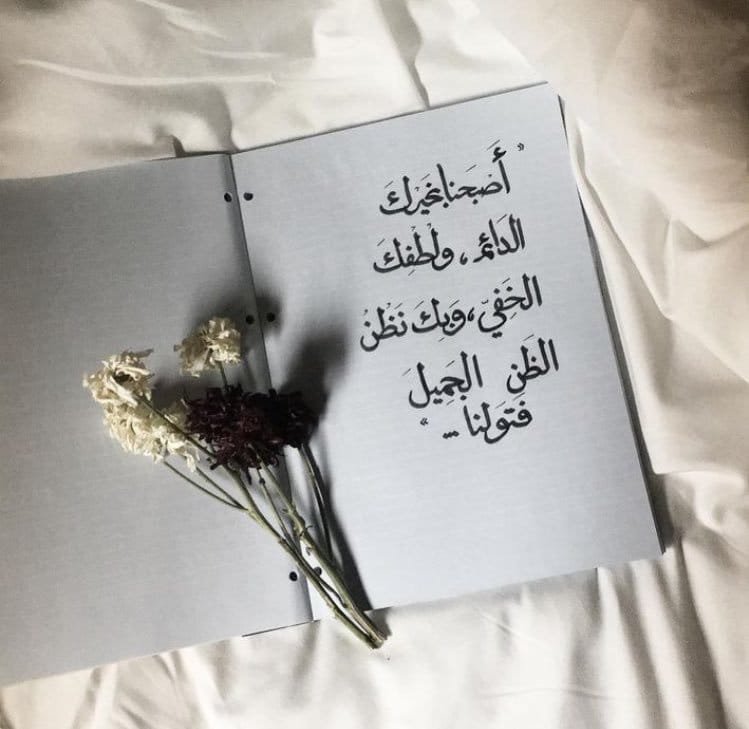 " أَصْبَحنا بخَيْرِكَ
الدَائم ، ولُطْفِكَ
الخَفيّ ، وَبِكَ نَظْنُ
الظَن الجَمِيلَ
فَتَولنا ... "